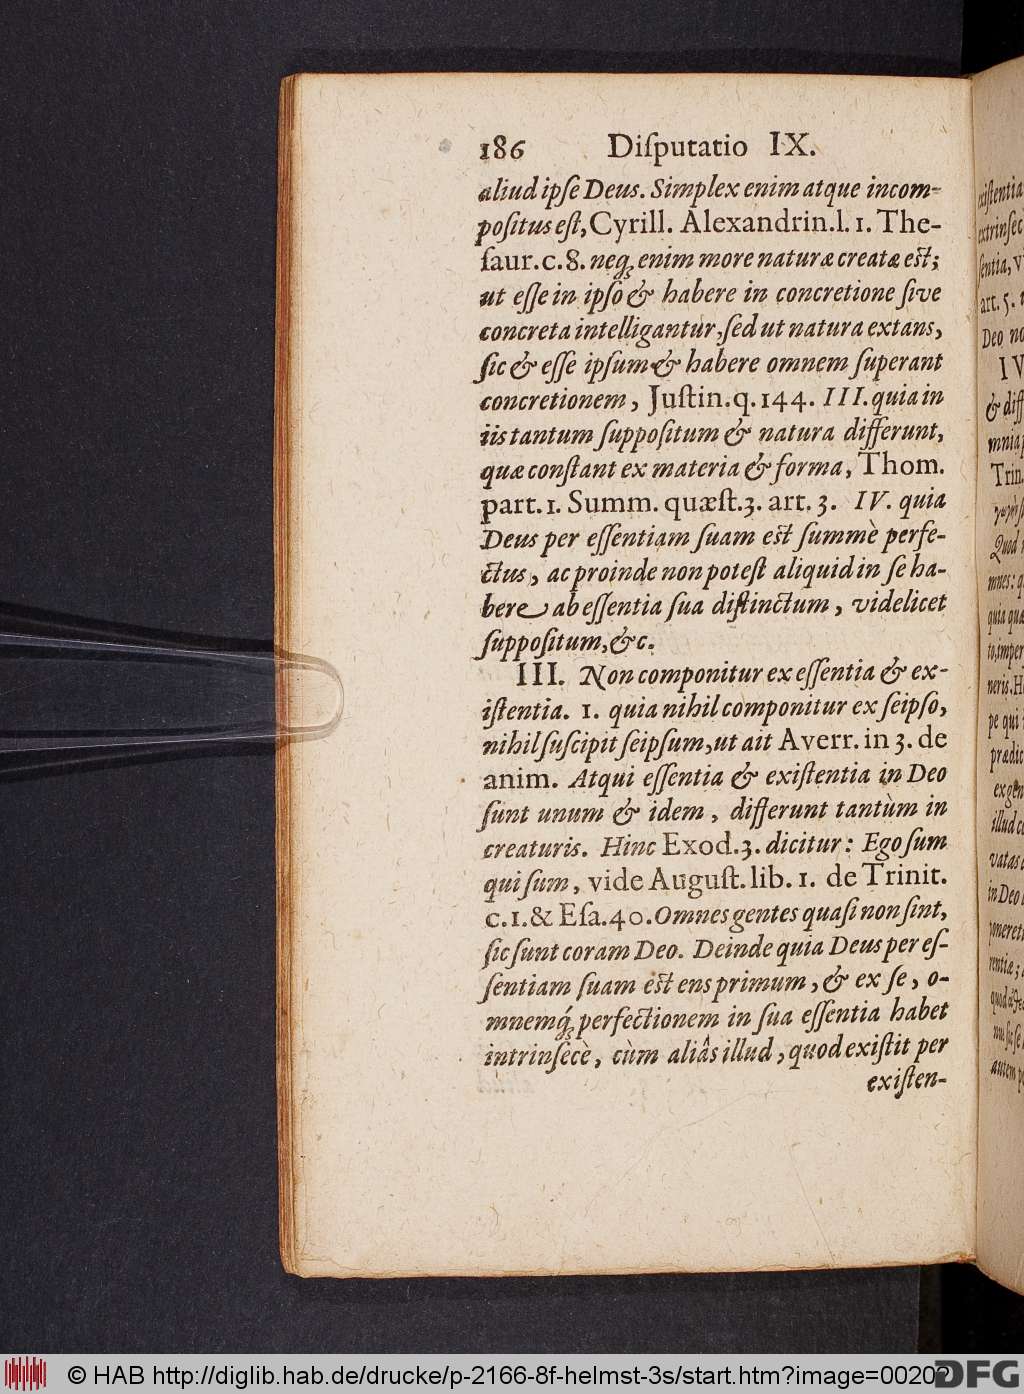 186 Diſputatio IX.
aliud ipſe Deus. Simplex enim atque incom-
poſitus eſt, Cyrill. Alexandrin. l. 1. The-
ſaur. c. 8. neq; enim more naturæ creatæ eſt;
ut eſſe in ipſo & habere in concretione ſive
concreta intelligantur, ſed ut natura extans,
ſic & eſſe ipſum & habere omnem ſuperant
concretionem, Juſtin. q. 144. III. quia in
iis tantum ſuppoſitum & natura differunt,
quæ conſtant ex materia & forma, Thom.
part. 1. Summ. quæſt. 3. art. 3. IV. quia
Deus per eſſentiam ſuam eſt ſummè perfe-
ctus, ac proinde non poteſt aliquid in ſe ha-
bere ab eſſentia ſua diſtinctum, videlicet
ſuppoſitum, &c.
III. Non componitur ex eſſentia & ex-
iſtentia. 1. quia nihil componitur ex ſeipſo,
nihil ſuſcipit ſeipſum, ut ait Averr. in 3. de
anim. Atqui eſſentia & exiſtentia in Deo
ſunt unum & idem, differunt tantùm in
creaturis. Hinc Exod. 3. dicitur: Ego ſum
qui ſum, vide Auguſt. lib. 1. de Trinit.
c. 1. & Eſa. 40. Omnes gentes quaſi non ſint,
ſic ſunt coram Deo. Deinde quia Deus per eſ-
ſentiam ſuam eſt ens primum, & ex ſe, o-
mnemq́; perfectionem in ſua eſſentia habet
intrinſecè, cùm aliâs illud, quod exiſtit per
exiſten-
exiſtentia
extrinſec
ſentia, v
art. 5.
Deo no
IV
& diff
mnia
Trin.
Quod
mnes: q
quia quæ
to, imper
neris. H
pe qui
prædic
ex gen
illud c
vatas
in Deo
poneret
rentiæ;
autem p
© HAB http://diglib.hab.de/drucke/p-2166-8f-helmst-3s/start.htm?image=00202
DFG